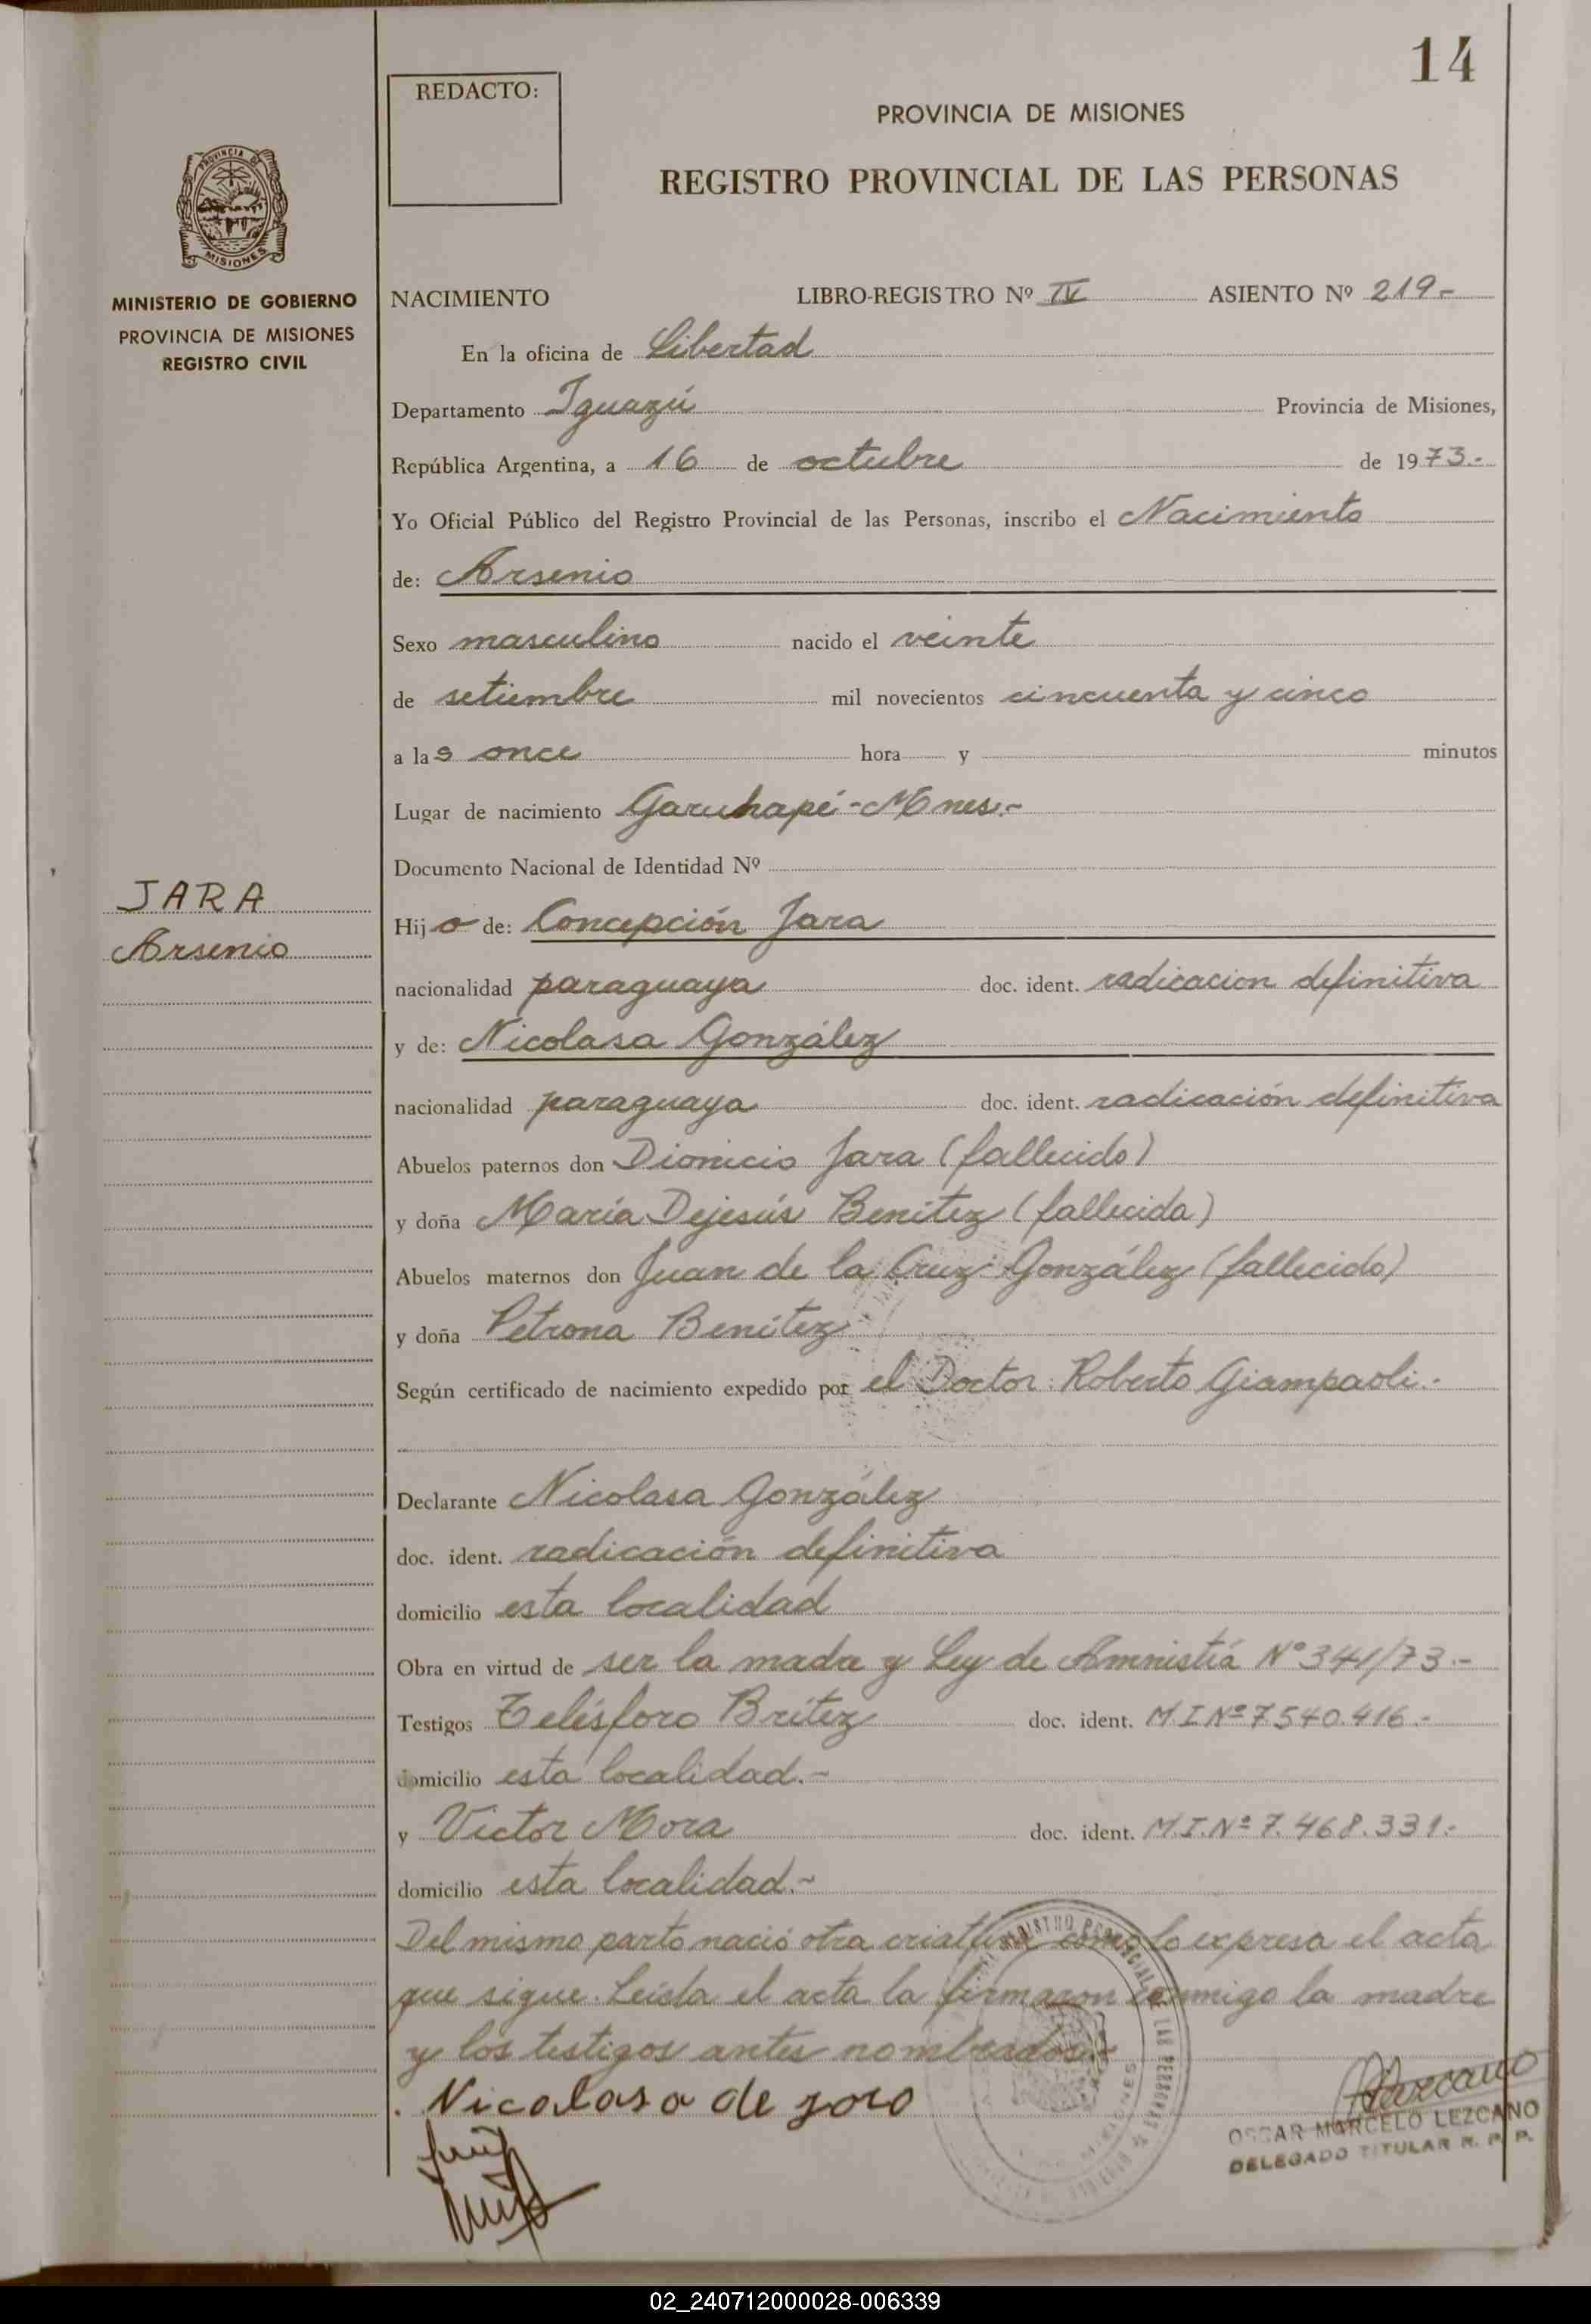 14
REDACTO:
PROVINCIA DE MISIONES
REGISTRO PROVINCIAL DE LAS PERSONAS
PROVINCIA DE
MISIONES
MINISTERIO DE GOBIERNO
PROVINCIA DE MISIONES
REGISTRO CIVIL
NACIMIENTO LIBRO-REGISTRO Nº IV ASIENTO Nº 219-
En la oficina de Libertad
Departamento Iguazú Provincia de Misiones,
República Argentina, a 16 de octubre de 1973.-
Yo Oficial Público del Registro Provincial de las Personas, inscribo el Nacimiento
de: Arsenio
Sexo masculino nacido el veinte
de setiembre mil novecientos cincuenta y cinco
a las once hora y minutos
Lugar de nacimiento Garuhapé-Mnes.-
Documento Nacional de Identidad Nº
JARA
Arsenio
Hijo de: Concepción Jara
nacionalidad paraguaya doc. ident. radicacion definitiva
y de: Nicolasa González
nacionalidad paraguaya doc. ident. radicación definitiva
Abuelos paternos don Dionicio Jara (fallecido)
y doña María Dejesús Benítez (fallecida)
Abuelos maternos don Juan de la Cruz González (fallecido)
y doña Petrona Benítez
Según certificado de nacimiento expedido por el Doctor: Roberto Giampaoli.-
Declarante Nicolasa González
doc. ident. radicación definitiva
domicilio esta localidad
Obra en virtud de ser la madre y Ley de Amnistía Nº 341/73.-
Testigos Telésforo Brítez doc. ident. M.I Nº 7.540.416.-
domicilio esta localidad.-
y Victor Mora doc. ident. M.I.Nº 7.468.331.-
domicilio esta localidad.-
Del mismo parto nació otra criatura como lo expresa el acta
que sigue. Leída el acta la firmaron conmigo la madre
y los testigos antes nombrados.-
Nicolasa de
OSCAR MARCELO LEZCANO
DELEGADO TITULAR R. P. P.
02_240712000028-006339